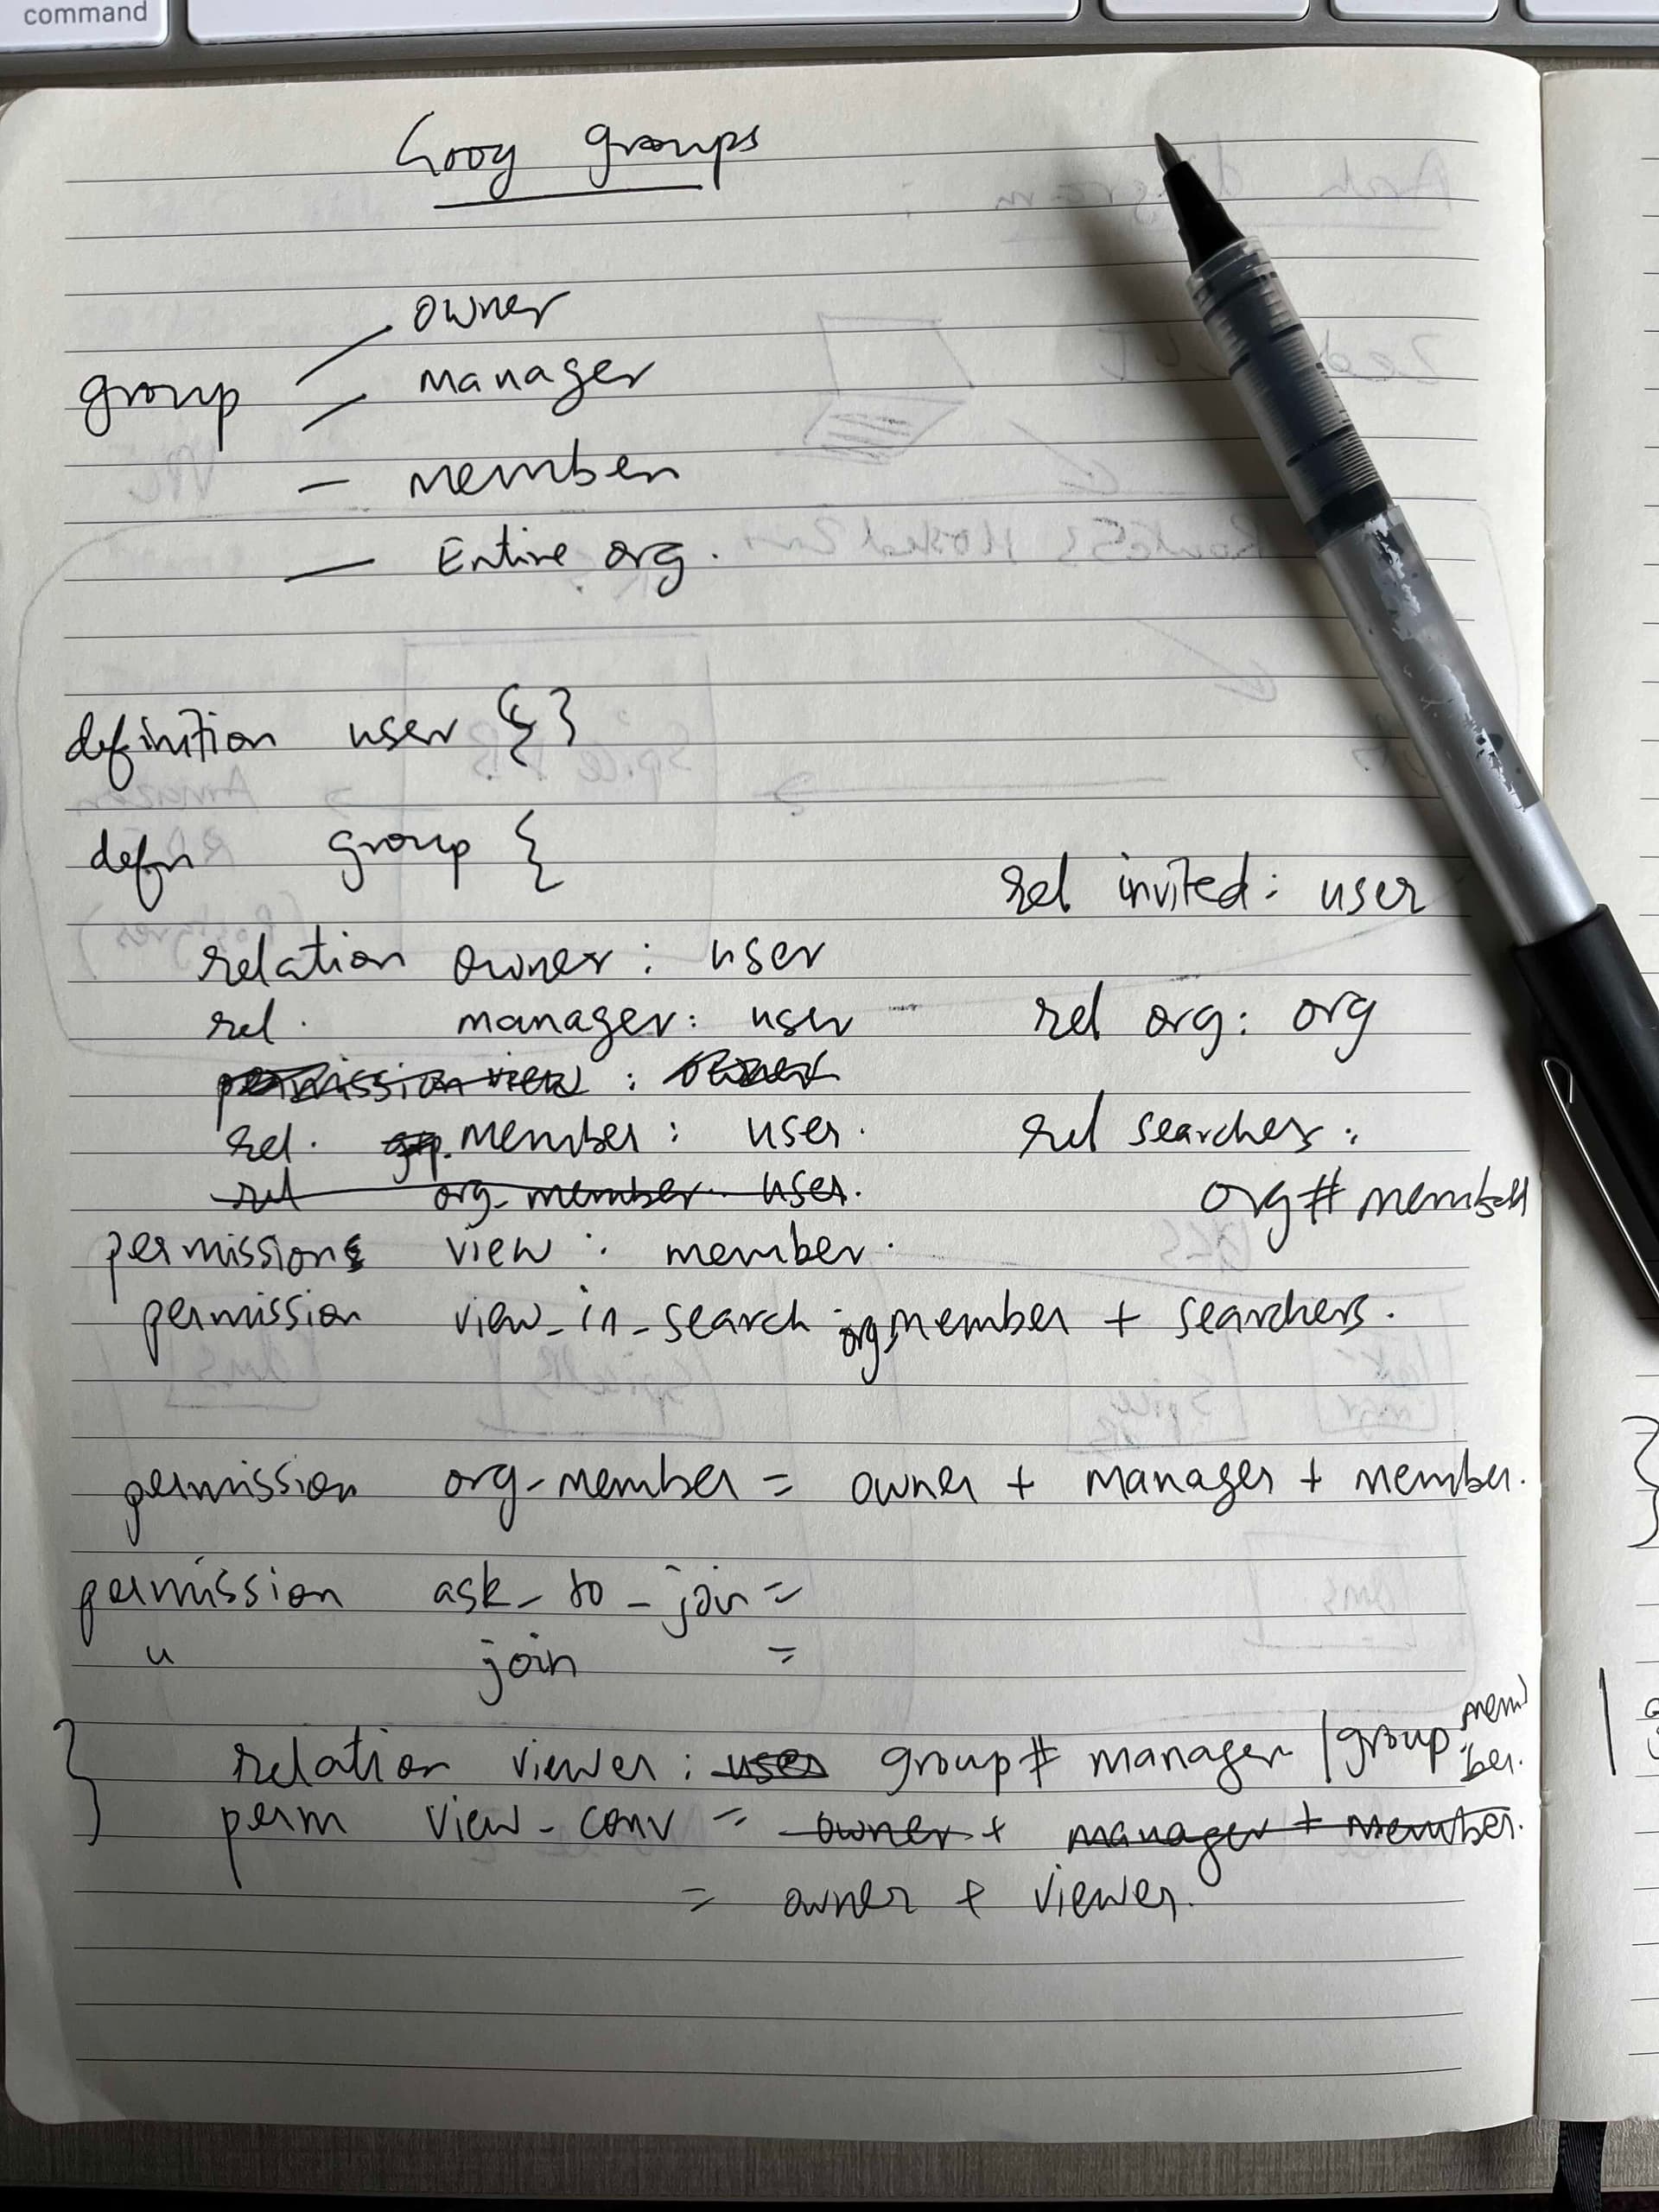 command
Goog groups
group
owner
manager
member
Entire org.
definition user {}
defn group {
rel invited: user
relation owner: user
rel. manager: user
rel org: org
permission view :
rel. member: user.
rel searcher:
rel org-member: user.
org#member
permissions view : member.
permission view_in_search : org member + searchers.
permission org-member = owner + manager + member.
permission ask_to_join =
" join =
} relation viewer: user group#manager | group. member.
perm view_conv = owner + manager + member.
= owner + viewer.